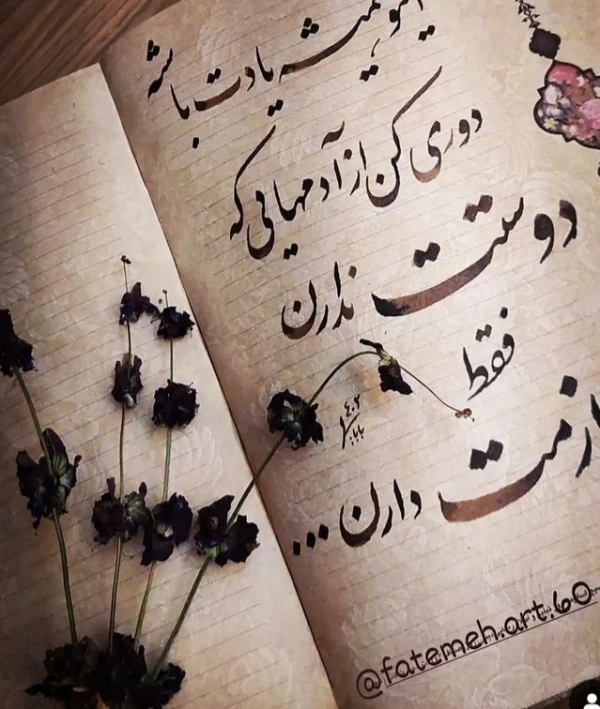 اینو همیشه یادت باشه
دوری کن از آدمهایی که
دوستت ندارن
فقط
لازمت دارن...
@fatemeh.art.60